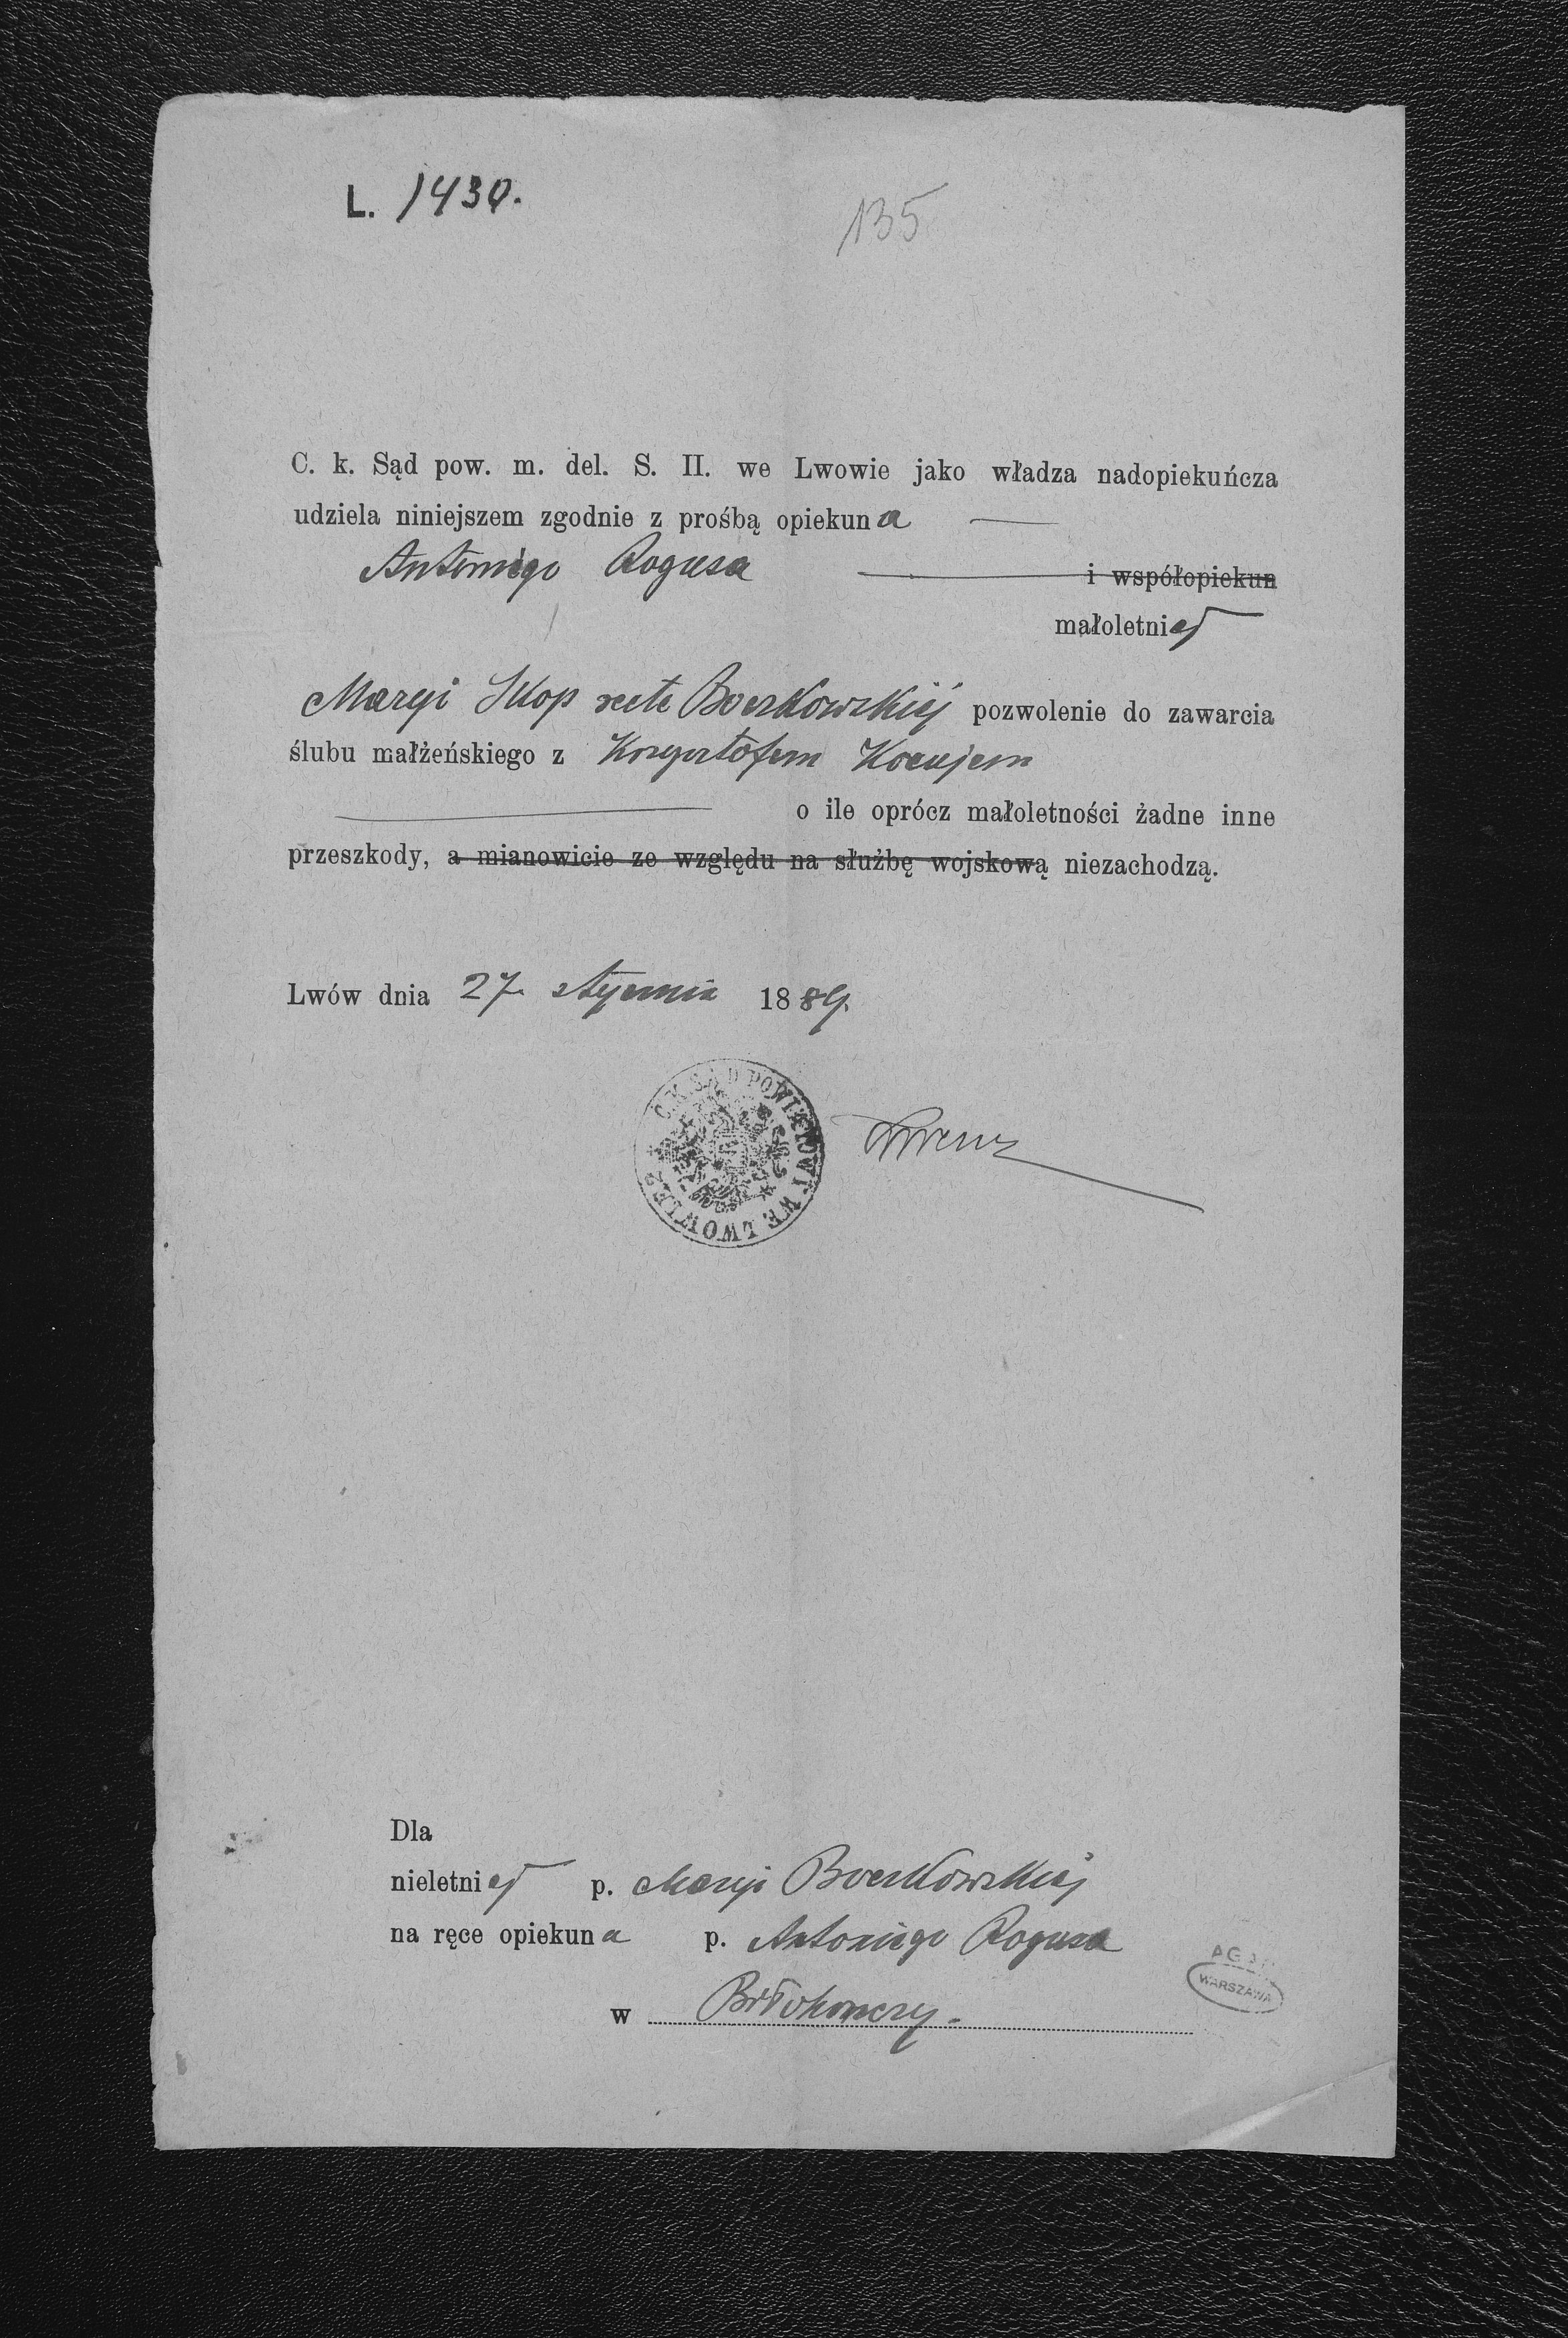 L. 1430.
135
C. k. Sąd pow. m. del. S. II. we Lwowie jako władza nadopiekuńcza
udziela niniejszem zgodnie z prośbą opiekuna
Antoniego Rogusa i współopiekun
małoletniej
Maryi Skop recte Boczkowskiej pozwolenie do zawarcia
ślubu małżeńskiego z Krzysztofem Kocujem
o ile oprócz małoletności żadne inne
przeszkody, a mianowicie ze względu na służbę wojskową niezachodzą.
Lwów dnia 27 stycznia 1889.
C.K. SĄD POWIATOWY WE LWOWIE
Dla
nieletniej p. Maryi Boczkowskiej
na ręce opiekuna p. Antoniego Rogusa
w Biłohorszczy.
AGAD
WARSZAWA